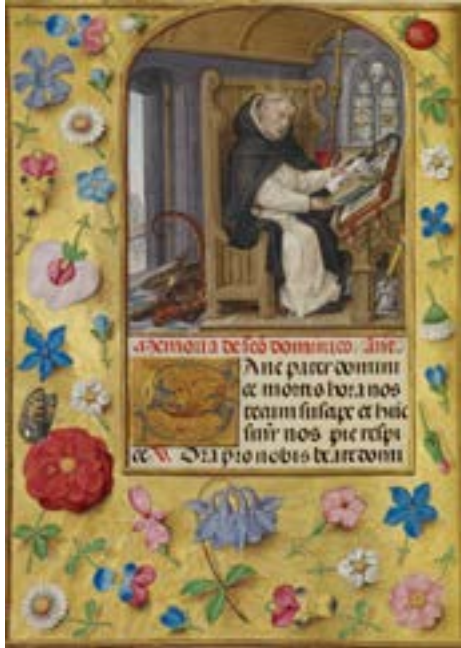 Memoria de sco dominico. Ant.
Ane pater domini
ce mortis hora nos
tecum suscipe et hic
semp nos pie respi
ce V. Ora pro nobis beate domi